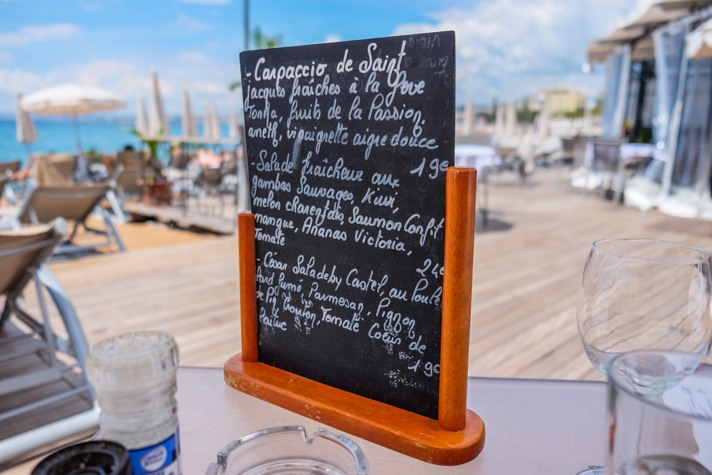 - Carpaccio de Saint
jacques fraîches à la fève
Tonka, fruits de la Passion,
aneth, vinaigrette aigre douce
19e
- Salade fraîcheur aux
gambas Sauvages, Kiwi,
melon charentais Saumon Confit
mangue, Ananas Victoria,
Tomate 24e
- César Salade by Castel, au Poulet
lard fumé, Parmesan, Pignon
de Pin, Crouton, Tomate Coeur de
19e